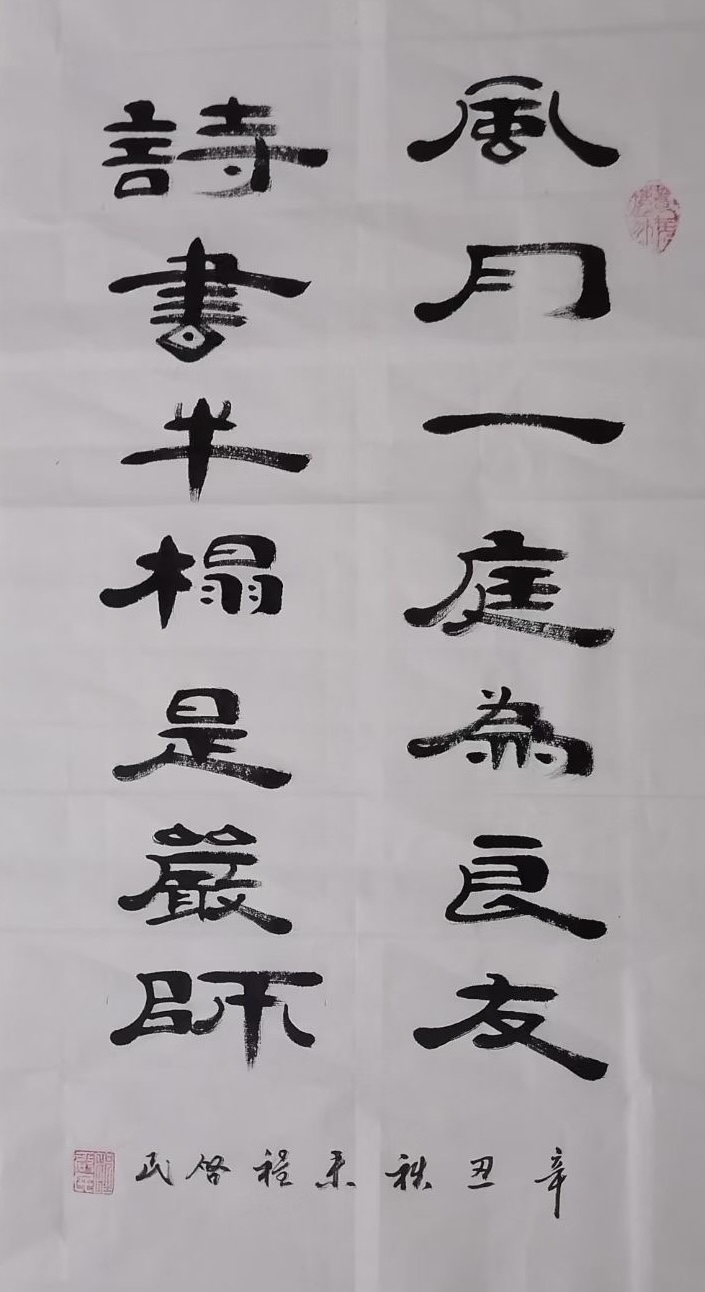 風月一庭為良友
詩書半榻是嚴師
辛丑秋末程啓民